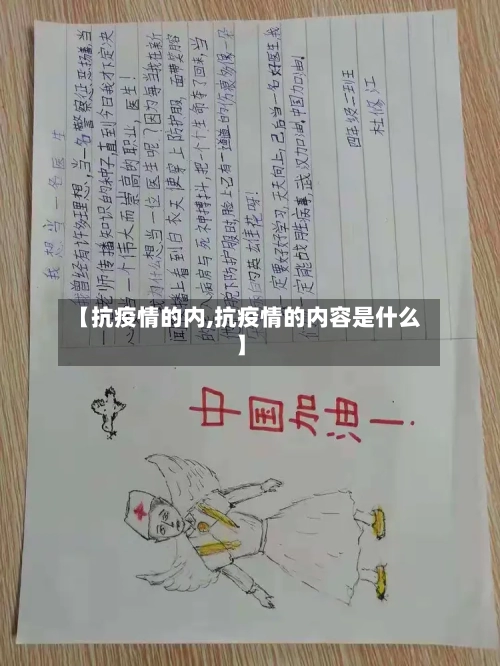 我想当一名医生
我曾经有许多理想,当一名警察惩恶扬善,当
一名老师传播知识的种子直到今日我才下定决
心当一个伟大而崇高的职业,医生!
什么想当一位医生呢?因为每当我在新
播上看到白衣天使穿上防护服,面
入病房与死神搏斗,把一个个生命夺了回来,当
脱下防护服时,脸上 有一道道的伤痕多像一朵
的英 花呀!
一定要好好学习,天天向上,已后当一名好医生,我
一定能战胜病毒,武汉加油,中国加油!
四年级二班
杜修江
【抗疫情的内,抗疫情的内容是什么
】
中国加油!